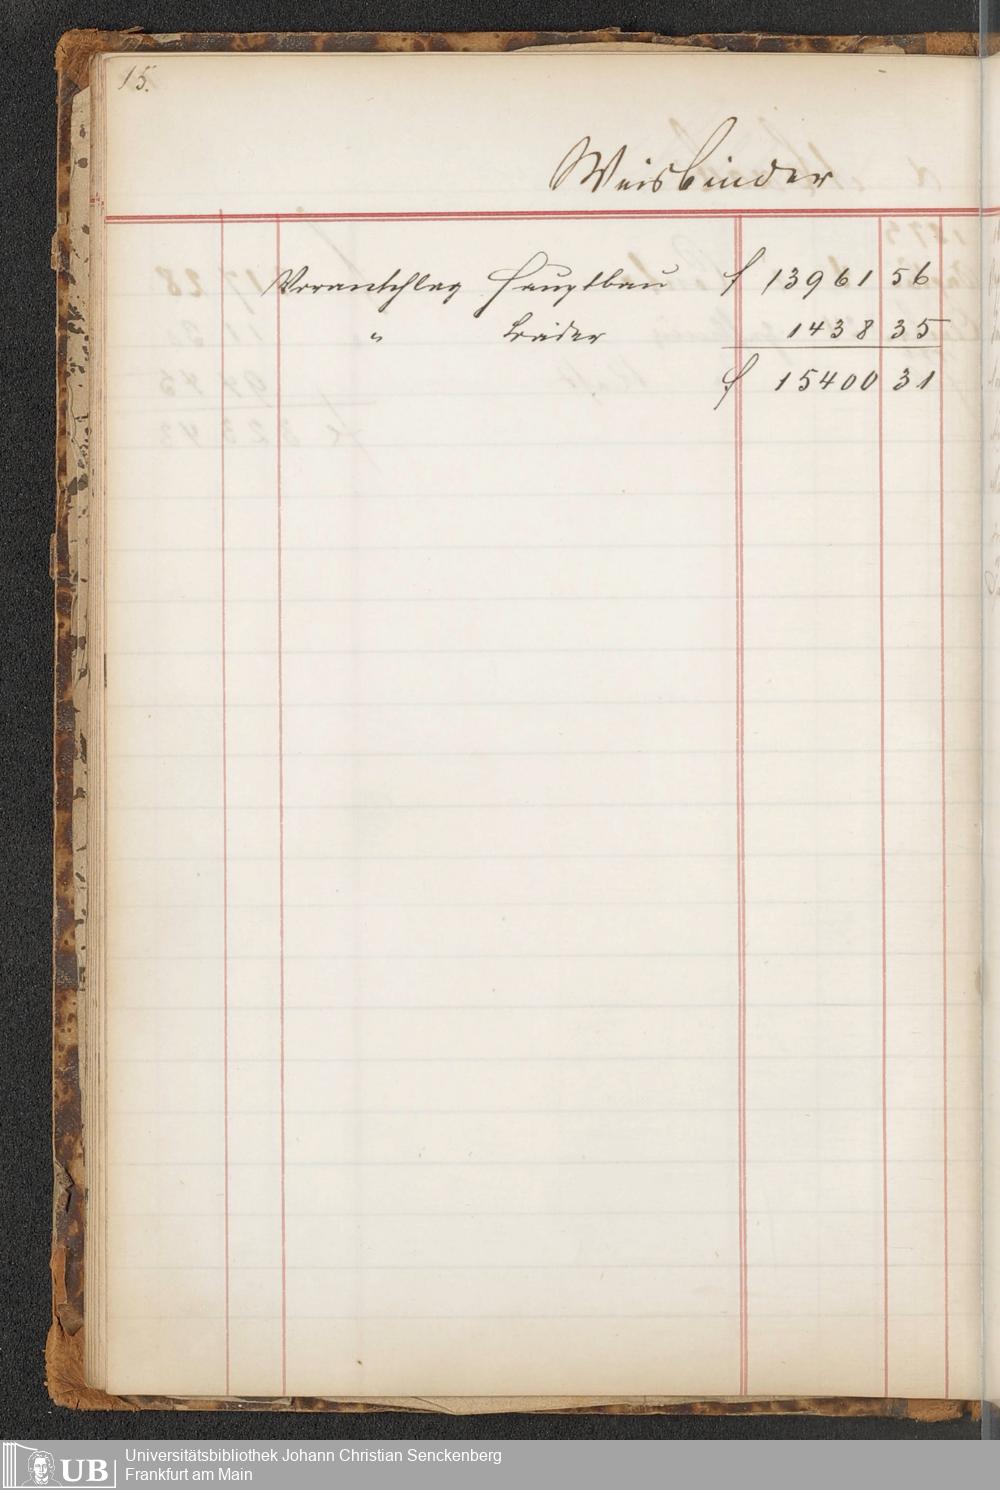 15.
Weisbinder
Voranschlag Hauptbau f 13961 56
" Bäder 1438 35
f 15400 31
UB
Universitätsbibliothek Johann Christian Senckenberg
Frankfurt am Main